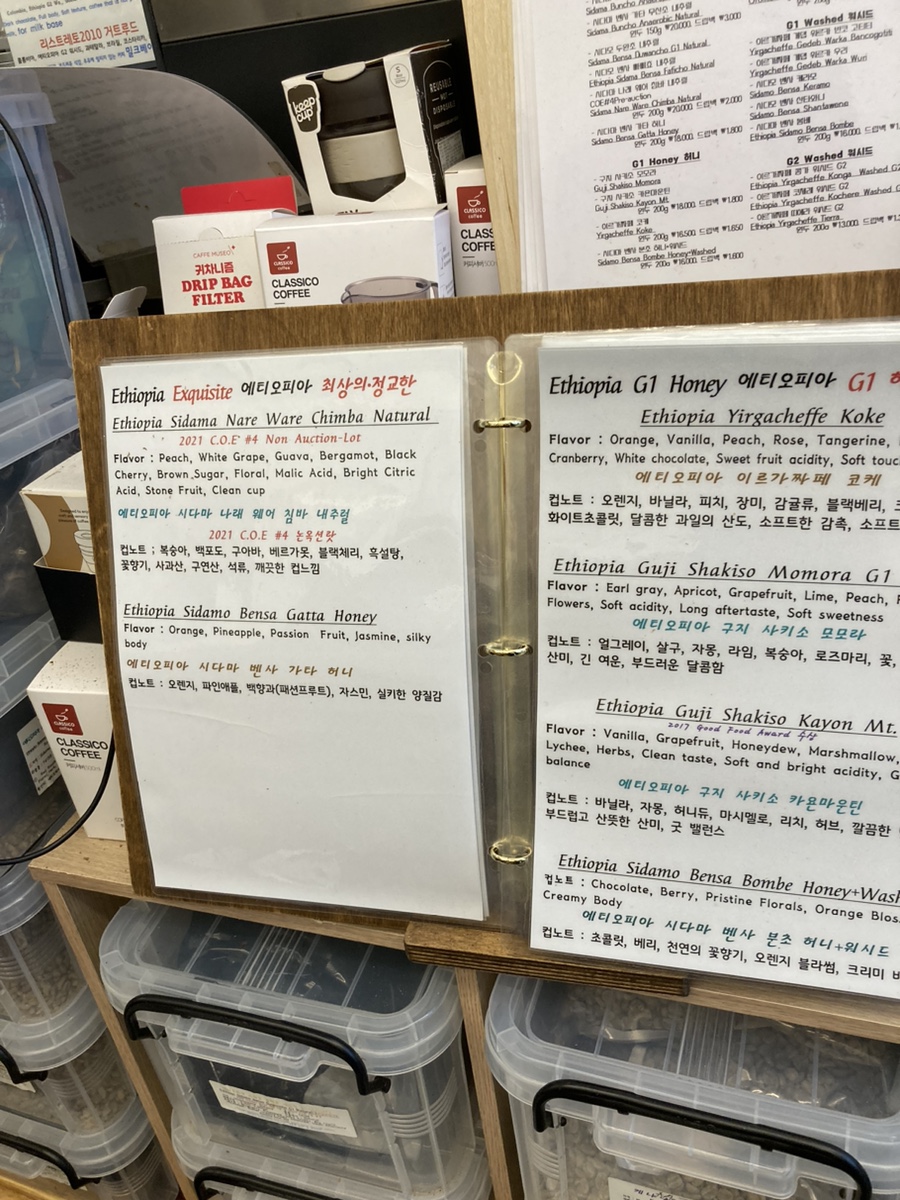 for milk base
리스트레토2010 거트루드
keep cup
REUSABLE
NOT
DISPOSABLE
CAFFE MUSEO
귀차니즘
DRIP BAG
FILTER
CLASSICO
coffee
CLASSICO
COFFEE
CLASSICO
coffee
Sidama Buncho Anaerobic Natural
원두 150g ₩20,000, 드립백 ₩3,000
- 시다모 두완쵸 내추럴
Sidama Bensa Duwancho G1 Natural
Ethiopia Sidama Bensa Faficho Natural
COE#4Pre-auction
Sidama Nare Ware Chimba Natural
원두 200g ₩20,000, 드립백 ₩2,000
- 시다마 벤사 가타 허니
Sidama Bensa Gatta Honey
원두 200g ₩18,000, 드립백 ₩1,800
G1 Honey 허니
- 구지 샤키소 모모라
Guji Shakiso Momora
- 구지 샤키소 카욘마운틴
Guji Shakiso Kayon Mt.
원두 200g ₩18,000, 드립백 ₩1,800
- 이르가짜페 코케
Yirgacheffe Koke
원두 200g ₩16,500, 드립백 ₩1,650
- 시다마 벤사 분조 허니+워시드
Sidama Bensa Bombe Honey+Washed
원두 200g ₩16,000, 드립백 ₩1,600
G1 Washed 워시드
Yirgacheffe Gedeb Warka Bancogotiti
Yirgacheffe Gedeb Warka Wuri
- 시다모 벤사 케라모
Sidamo Bensa Keramo
- 시다모 벤사 샨타워니
Sidamo Bensa Shantawene
- 시다모 벤사 봄베
Ethiopia Sidamo Bensa Bombe
원두 200g ₩16,000, 드립백
G2 Washed 워시드
Ethiopia Yirgacheffe Konga Washed
Ethiopia Yirgacheffe Kochere Washed
Ethiopia Yirgacheffe Tierra
원두 200g ₩13,000, 드립백
Ethiopia Exquisite 에티오피아 최상의·정교한
Ethiopia Sidama Nare Ware Chimba Natural
2021 C.O.E #4 Non Auction-Lot
Flavor : Peach, White Grape, Guava, Bergamot, Black
Cherry, Brown Sugar, Floral, Malic Acid, Bright Citric
Acid, Stone Fruit, Clean cup
에티오피아 시다마 나래 웨어 침바 내추럴
2021 C.O.E #4 논옥션랏
컵노트 ; 복숭아, 백포도, 구아바, 베르가못, 블랙체리, 흑설탕,
꽃향기, 사과산, 구연산, 석류, 깨끗한 컵느낌
Ethiopia Sidamo Bensa Gatta Honey
Flavor : Orange, Pineapple, Passion Fruit, Jasmine, silky
body
에티오피아 시다마 벤사 가타 허니
컵노트 : 오렌지, 파인애플, 백향과(패션프루트), 자스민, 실키한 양질감
Ethiopia G1 Honey 에티오피아 G1
Ethiopia Yirgacheffe Koke
Flavor : Orange, Vanilla, Peach, Rose, Tangerine,
Cranberry, White chocolate, Sweet fruit acidity, Soft touc
에티오피아 이르가짜페 코케
컵노트 : 오렌지, 바닐라, 피치, 장미, 감귤류, 블랙베리,
화이트초콜릿, 달콤한 과일의 산도, 소프트한 감촉, 소프트
Ethiopia Guji Shakiso Momora G1
Flavor : Earl gray, Apricot, Grapefruit, Lime, Peach,
Flowers, Soft acidity, Long aftertaste, Soft sweetness
에티오피아 구지 사키소 모모라
컵노트 : 얼그레이, 살구, 자몽, 라임, 복숭아, 로즈마리, 꽃,
산미, 긴 여운, 부드러운 달콤함
Ethiopia Guji Shakiso Kayon Mt.
2017 Good Food Award 수상
Flavor : Vanilla, Grapefruit, Honeydew, Marshmallow,
Lychee, Herbs, Clean taste, Soft and bright acidity, G
balance
에티오피아 구지 사키소 카욘마운틴
컵노트 : 바닐라, 자몽, 허니듀, 마시멜로, 리치, 허브, 깔끔한
부드럽고 산뜻한 산미, 굿 밸런스
Ethiopia Sidamo Bensa Bombe Honey+Wash
컵노트 : Chocolate, Berry, Pristine Florals, Orange Blos
Creamy Body
에티오피아 시다마 벤사 분조 허니+워시드
컵노트 : 초콜릿, 베리, 천연의 꽃향기, 오렌지 블라썸, 크리미
CLASSICO
coffee
CLASSICO
COFFEE